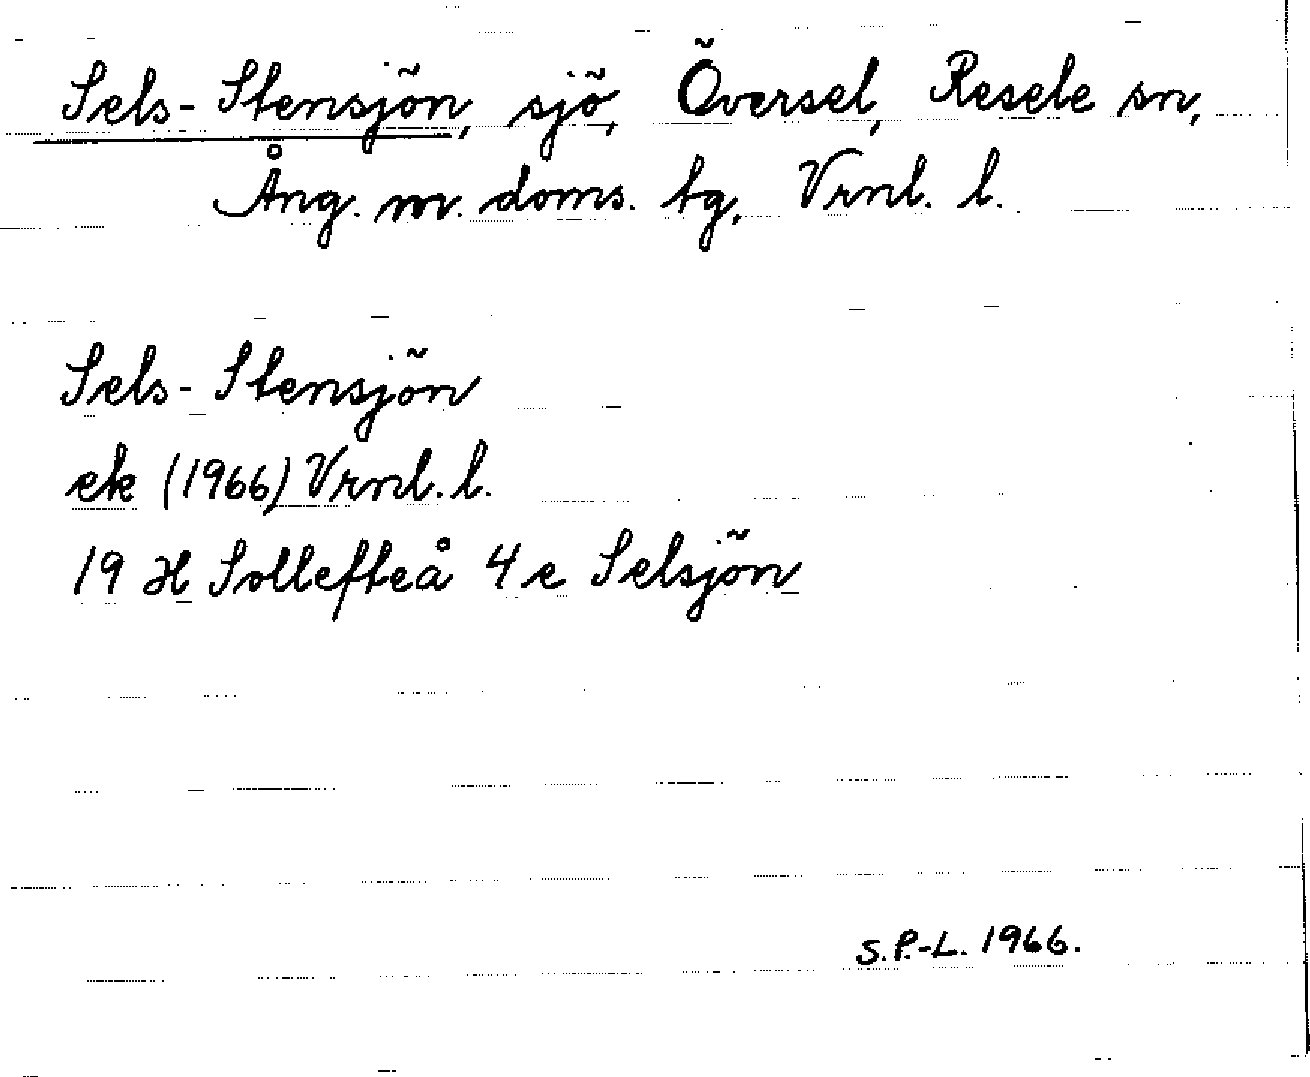 Sels-Stensjön, sjö, Översel, Resele sn,
Ång. m. doms. tg, Vrnl. l.
Sels-Stensjön
ek (1966) Vrnl. l.
19 H Sollefteå 4 e Selsjön
S.P.-L. 1966.